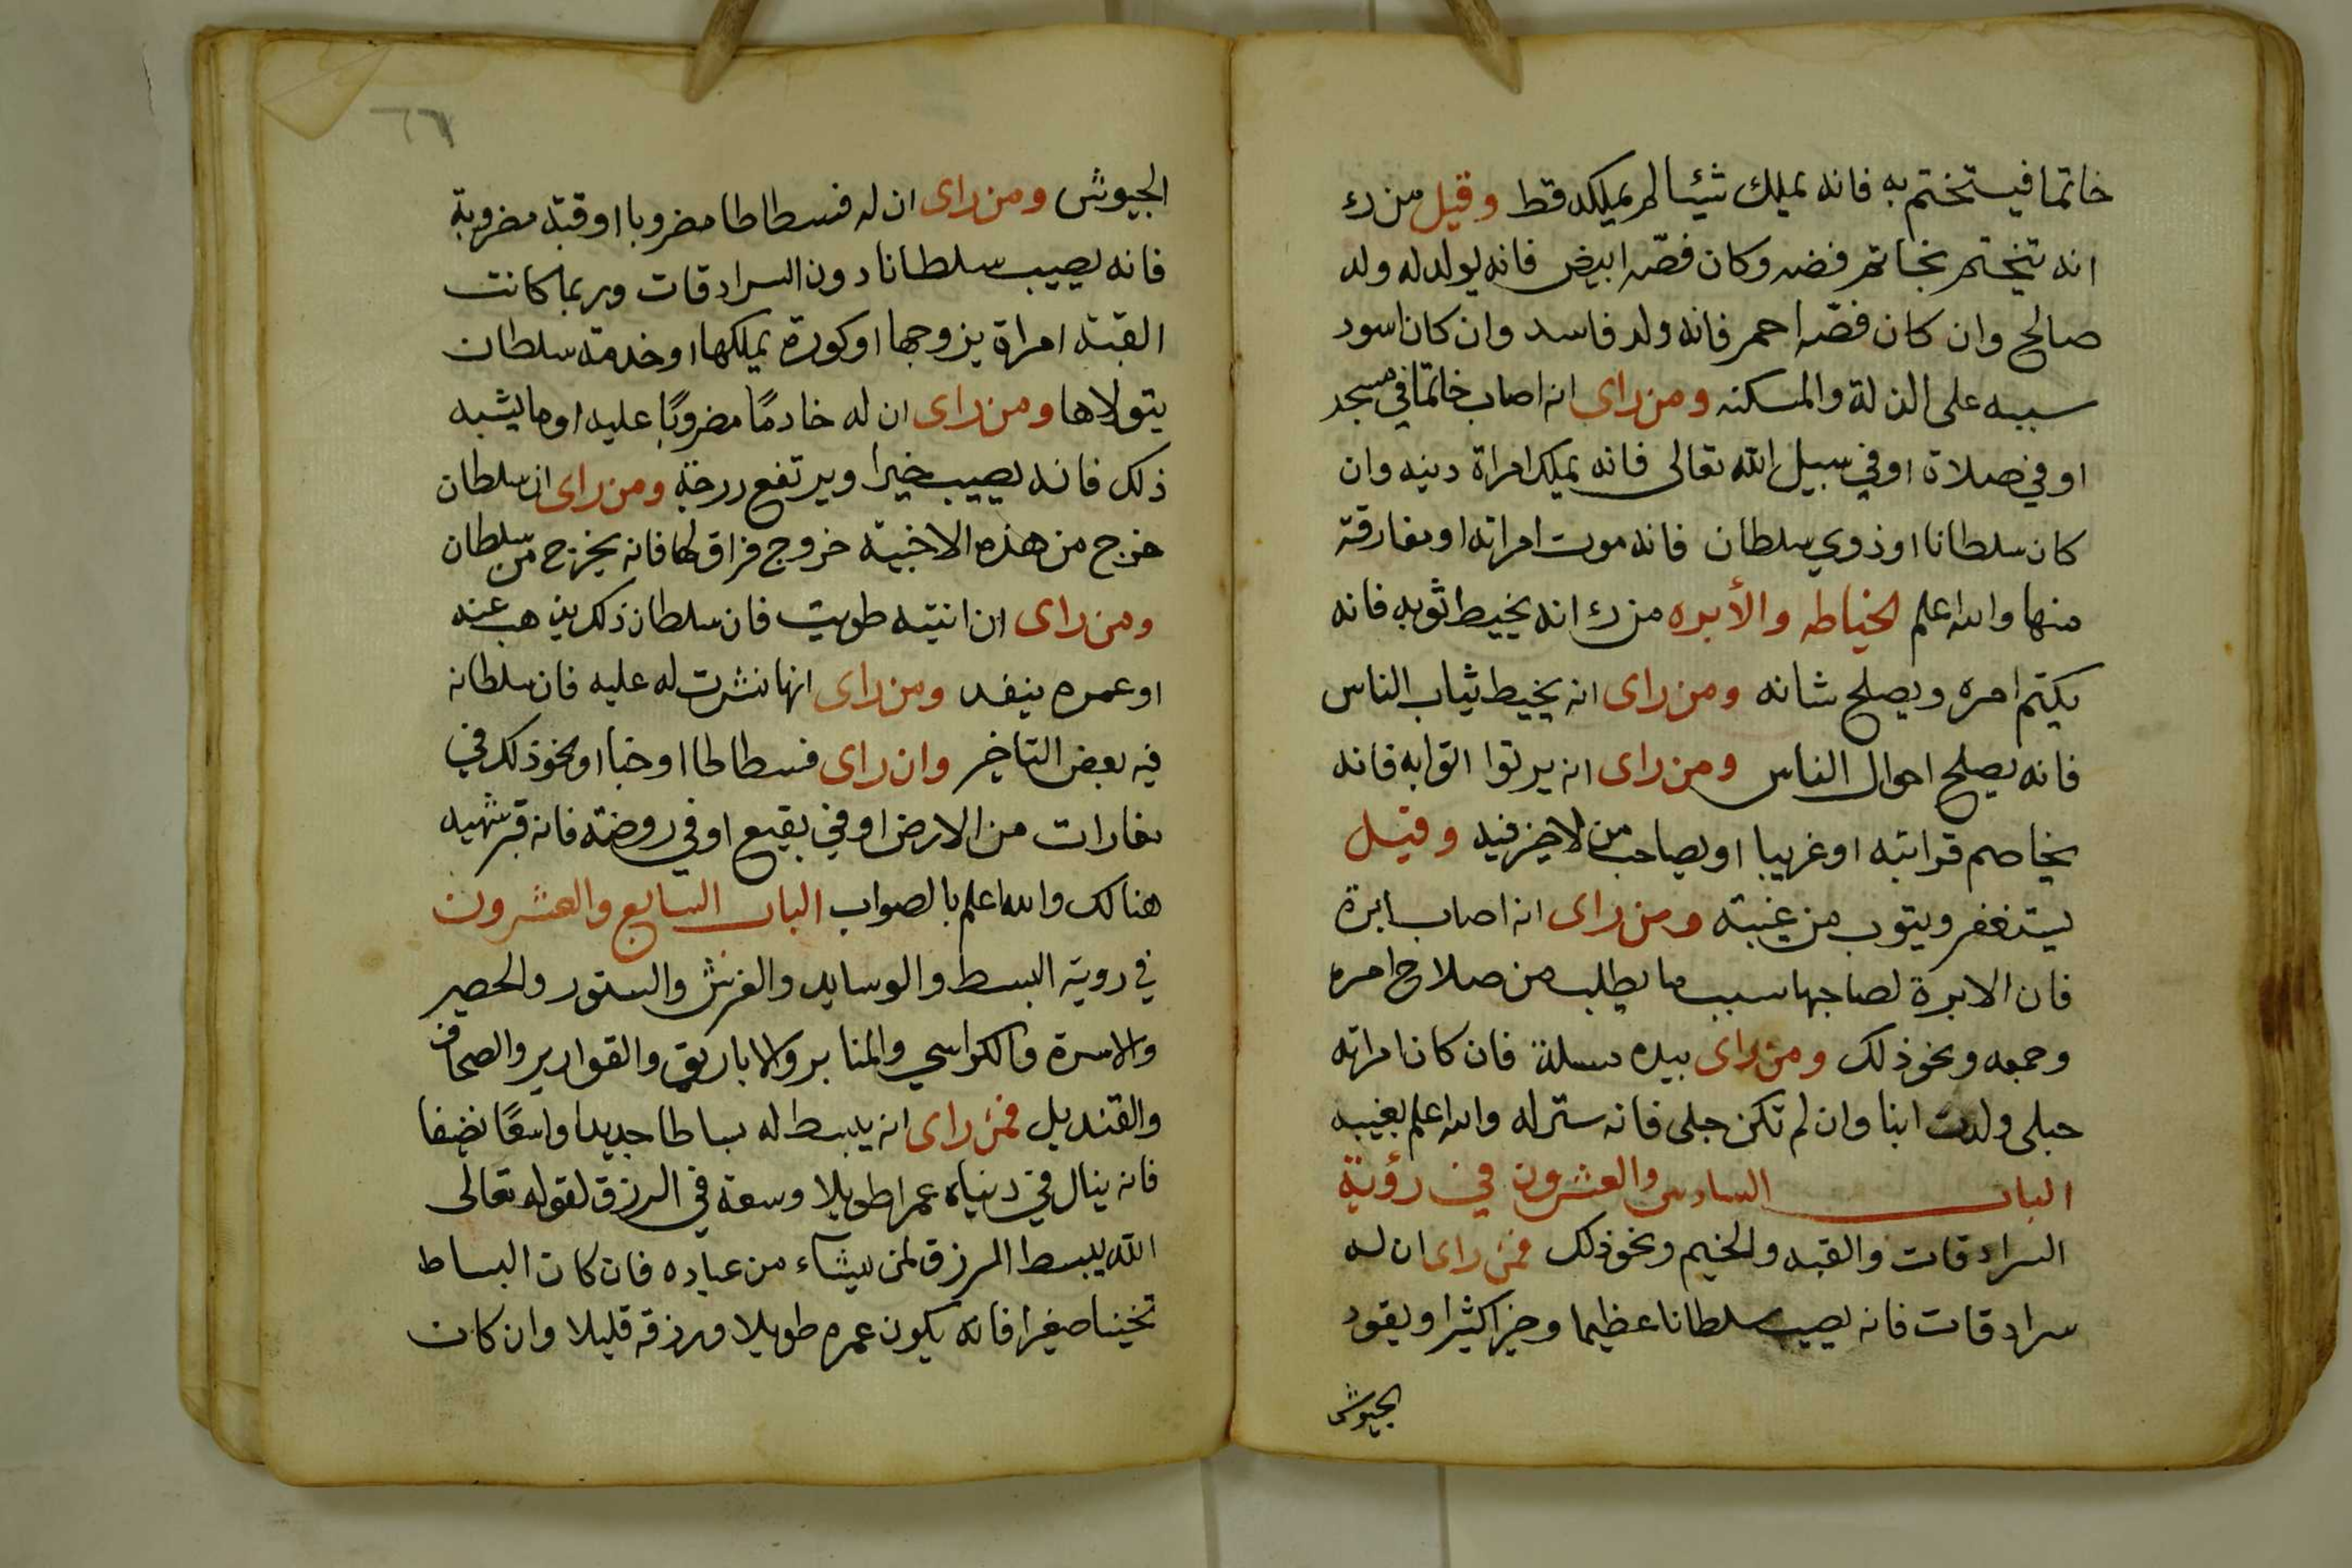 خاتما فيستختم به فانه يملك شيئا لم يملكه قط وقيل من رء
انه تختم بخاتم فضه وكان فصّه ابيض فانه يولد له ولد
صالح وان كان فصّه احمر فانه ولد فاسد وان كان اسود
سببه على الذلة والمسكنه ومن راى انه اصاب خاتما في مسجد
او في صلاة او في سبيل الله تعالى فانه يملك امراة دينه وان
كان سلطانا او ذوي سلطان فانه موت امراته او مفارقته
منها والله اعلم الخياطه والأبره من رء انه يخيط ثوبه فانه
يكتم امره ويصلح شانه ومن راى انه يخيط ثياب الناس
فانه يصلح احوال الناس ومن راى انه يرتوا اثوابه فانه
يخاصم قرابته او غريبا او يصاحب من لا خير فيه وقيل
يستغفر ويتوب من غيبته ومن راى انه اصاب ابرة
فان الابرة لصاحبها سبب ما يطلب من صلاح امره
وجمعه ونحو ذلك ومن راى بيده مسلة فان كان امراته
حبلى ولدت ابنا وان لم تكن حبلى فانه ستر له والله اعلم بغيبه
الباب السادس والعشرون في رؤية
السرادقات والقبه والخيم ونحو ذلك فمن راى ان له
سرادقات فانه يصيب سلطانا عظيما وخيرا كثيرا ويقود
الجيوش
٦٦
الجيوش ومن راى ان له فسطاطا مضروبا او قبة مضروبة
فانه يصيب سلطانا دون السرادقات وربما كانت
القبة امراة يزوجها او كورة يملكها او خدمة سلطان
يتولاها ومن راى ان له خادمًا مضروبًا عليه او ما يشبه
ذلك فانه يصيب خيرا ويرتفع درجة ومن راى ان سلطان
خرج من هذه الاخبية خروج فراق لها فانه يخرج من سلطان
ومن راى ان انيته طويت فان سلطان ذلك يذهب عنه
او عمره ينفد ومن راى انها نشرت له عليه فان سلطانه
فيه بعض التاخير وان راى فسطاطا او خبا او نحو ذلك في
مغارات من الارض او في بقيع او في روضة فانه قبر شهيد
هنالك والله اعلم بالصواب الباب السابع والعشرون
في روية البسط والوسايد والفرش والستور والحصير
والاسرة والكراسي والمنابر والاباريق والقوارير والصحاف
والقنديل فمن راى انه يبسط له بساطا جديدا واسعًا نضيفا
فانه ينال في دنياه عمرا طويلا وسعة في الرزق لقوله تعالى
الله يبسط الرزق لمن يشاء من عباده فان كان البساط
تخينا صغيرا فانه يكون عمره طويلا ورزقه قليلا وان كان